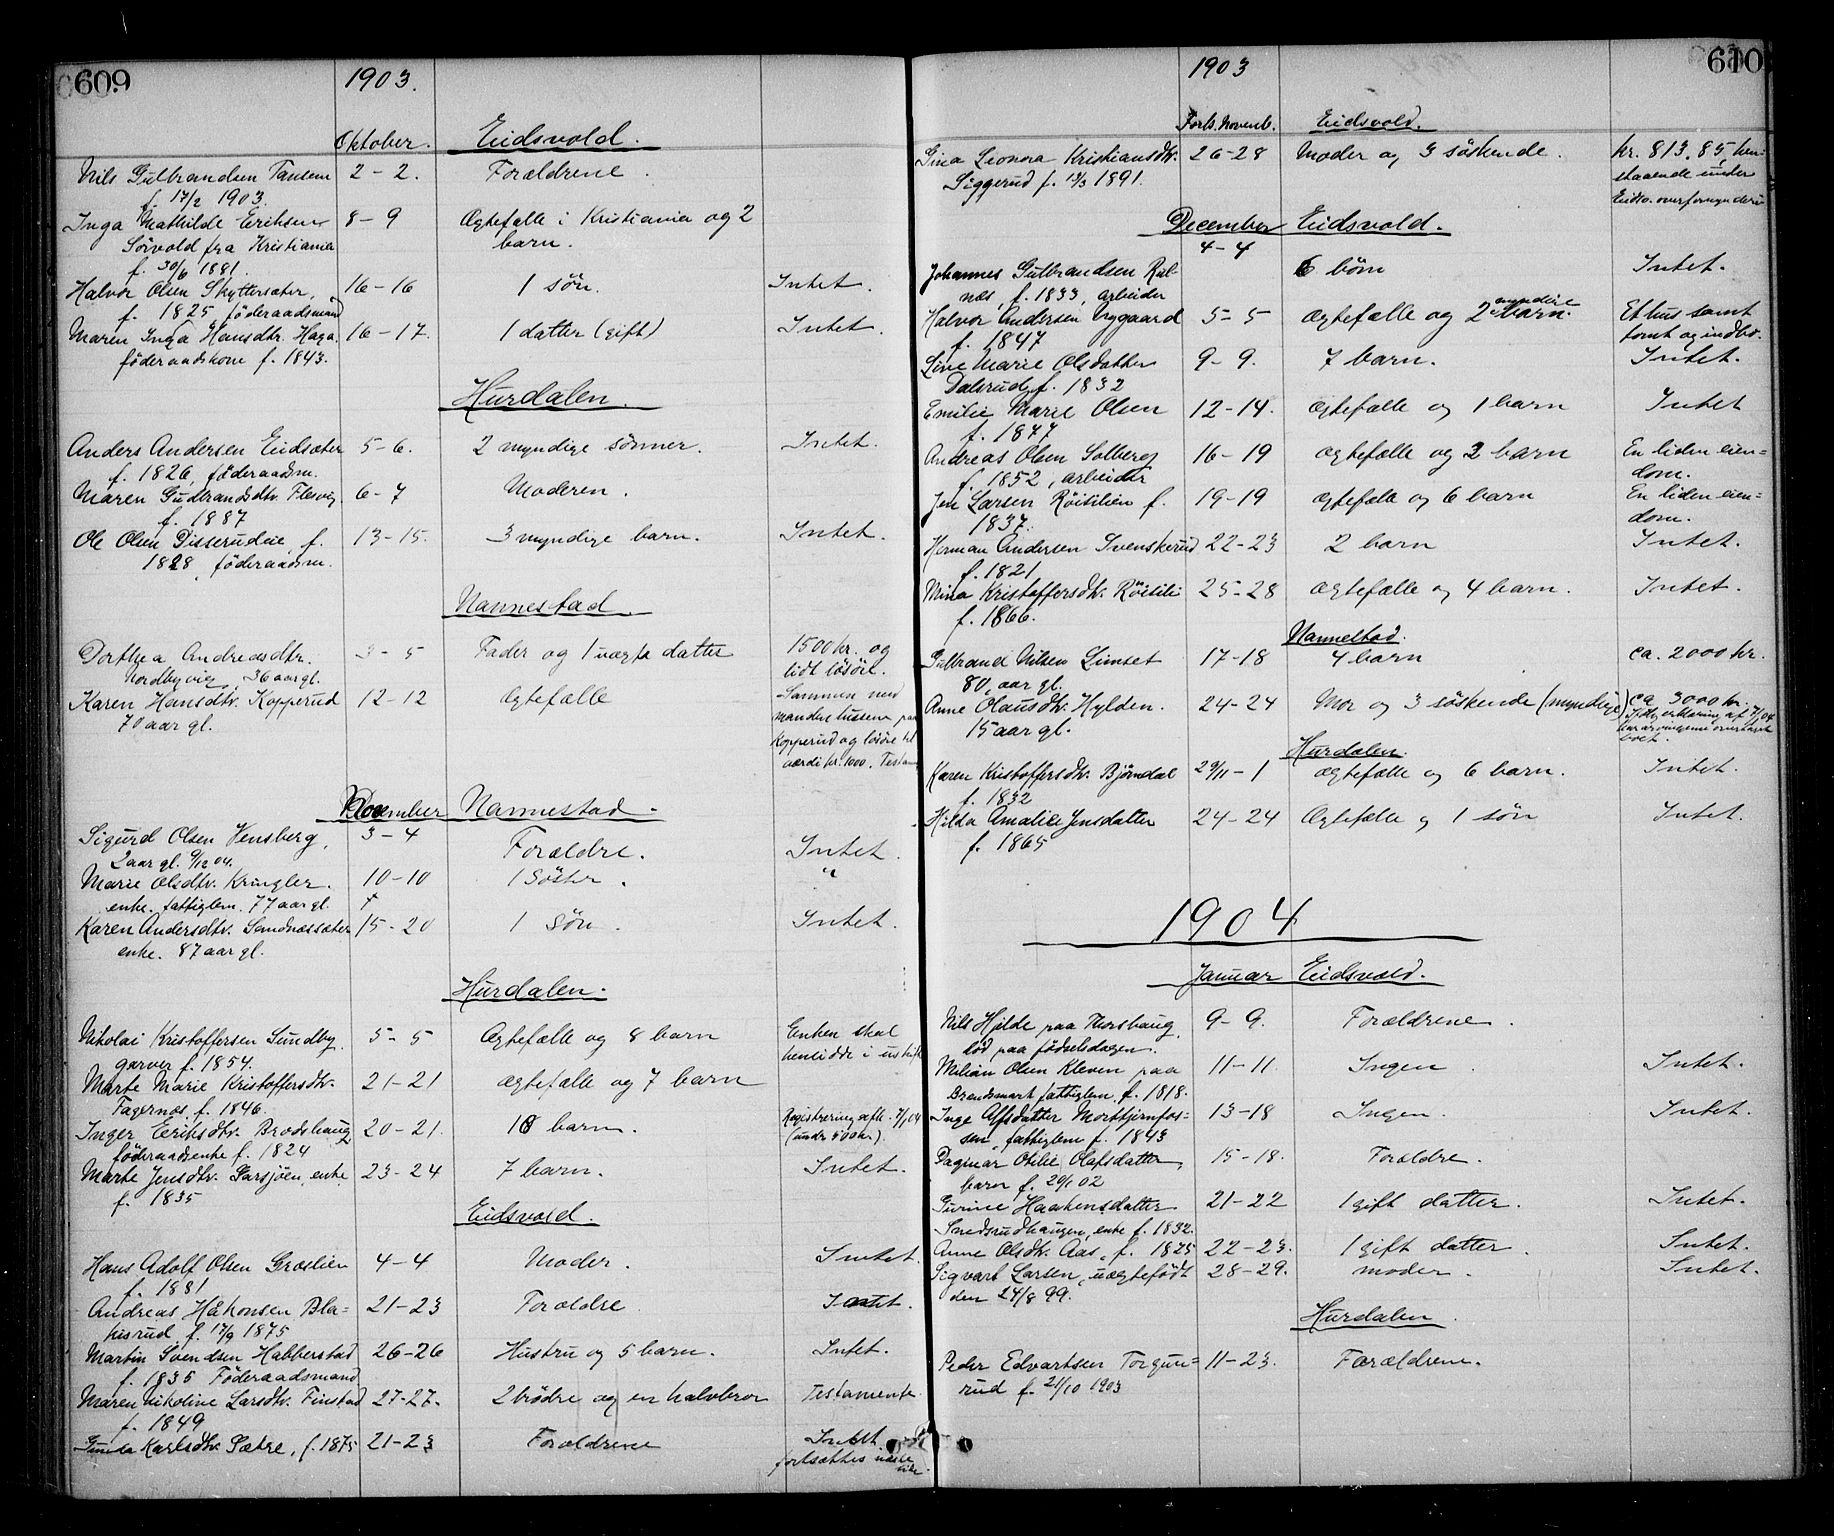 609
1903.
Oktober. Eidsvold.
Nils Gulbrandsen 2-2. Forældrene.
f. 17/2 1903.
Inga Mathilde Eriksen 8-9 Ægtefælle i Kristiania og 2
Sörvold fra Kristiania barn.
f. 30/6 1881.
Halvor Olsen Skyttersæter, 16-16 1 sön. Intet.
f. 1825 föderaadsmand
Maren Inga Hansdtr. Haga 16-17. 1 datter (gift) Intet.
föderaadskone f. 1843.
Hurdalen.
Anders Andersen Eidsæter 5-6. 2 myndige sønner. Intet.
f. 1826, föderaadsm.
Maren Gudbrandsdtr. Flesvig 6-7 Moderen.
f. 1887
Ole Olsen Disserudeie f. 13-15. 3 myndige barn. Intet.
1828, föderaadsm.
Nannestad.
Dorthea Andreasdtr. 3-5 Fader og 1 uægte datter 1500 kr. og
Nordbyvig, 36 aar gl. lidt lösöre.
Karen Hansdtr. Kopperud 12-12 Ægtefælle Sammen med
70 aar gl. manden paa
Kopperud og lösöre til
værdi kr. 1000.
November Nannestad.
Sigurd Olsen Vensberg, 3-4 Forældre. Intet.
2 aar gl. 9/12 04.
Marie Olsdtr. Kringler. 10-10 1 Söster. "
enke. fattiglem. 77 aar gl.
Karen Andersdtr. Sandnessæter 15-20 1 Sön. Intet.
enke. 87 aar gl.
Hurdalen.
Nikolai Kristoffersen Sundby 5-5 Ægtefælle og 8 barn Enken skal
garver f. 1854. hensidde i uskifte
Marte Marie Kristoffersdtr. 21-21 Ægtefælle og 7 barn
Fagernes, f. 1846.
Inger Eriksdtr. Brodshaug 20-21. 10 barn. Registrering 7/1 04
föderaadsenke f. 1824 (under 500 kr.).
Marte Jensdtr. Garsjøen, enke 23-24 7 barn. Intet.
f. 1835
Eidsvold.
Hans Adolf Olsen Græslien 4-4 Moder. Intet.
f. 1881
Andreas Håkonsen Bla= 21-23 Forældre Intet.
kisrud f. 17/9 1875
Martin Svendsen Habberstad 26-26 Hustru og 5 barn. Intet.
f. 1835 Föderaadsmand
Maren Nikoline Larsdtr. Finstad 27-27. 2 brödre og en halvbror Testamente
f. 1849
Karlsdtr. Sætre, f. 1875 21-23 Forældrene Intet.
fortsættes næste
side.
610
1903
Forts. Novemb. Eidsvold.
Gina Leonora Kristiansdtr. 26-28 Moder og 3 söskende. kr. 813,85, hen=
Siggerud f. 13/3 1891. staaende under
Eidsv. overformynderi
December Eidsvold.
4-4
Johannes Gulbrandsen Ral= 6 börn Intet.
næs, f. 1833, arbeider
Halvor Andersen Nygaard 5-5 Ægtefælle og 2 myndige barn. Et hus samt
f. 1847 tomt og indbo.
Line Marie Olsdatter 9-9. 7 barn. Intet.
Dalsrud, f. 1832
Emilie Marie Olsen 12-14. Ægtefælle og 1 barn Intet
f. 1847
Andreas Olsen Solberg 16-19 Ægtefælle og 2 barn En liden eien=
f. 1852, arbeider dom.
Jens Larsen Röisilien f. 19-19 Ægtefælle og 6 barn En liden eien=
1837. dom.
Herman Andersen Svenskerud 22-23 2 barn Intet.
f. 1821
Mina Kristoffersdtr. Röisili 25-28 Ægtefælle og 4 barn. Intet.
f. 1866.
Nannestad.
Gulbrand Nilsen Limset 17-18 4 barn ca. 2000 kr.
80, aar gl.
Anne Olausdtr. Hylden. 24-24 Mor og 3 söskende (myndige) ca 3000 kr.
15 aar gl. erklæring af 7/1 04
har arvingerne overtaget
boet.
Hurdalen.
Karen Kristoffersdtr. Björndal 29/11-1 Ægtefælle og 6 barn. Intet.
f. 1832
Hilda Amalie Jensdatter 24-24 Ægtefælle og 1 sön Intet.
f. 1865
1904
Januar Eidsvold.
Nils Hilde paa Thorshaug, 9-9. Forældrene.
död paa fødselsdagen.
Milian Olsen Kleven paa 11-11 Ingen. Intet.
Brendsmart fattiglem, f. 1818.
Inge 13-18 Ingen. Intet.
sen, fattiglem f. 1843
Dagmar Otilie Olafsdatter, 15-18. Forældre.
barn f. 29/1 02
Gurine Haakensdatter 21-22 1 gift datter. Intet.
Sandsrudhaugen, enke f. 1832.
Anne Olsdtr. Aas, f. 1825 22-23. 1 gift datter. Intet.
Sigvart Larsen, uægtefödt 28-29. moder. Intet.
den 24/8 99.
Hurdalen.
Peder Edvartsen Torgun= 11-23. Forældrene.
rud f. 21/10 1903